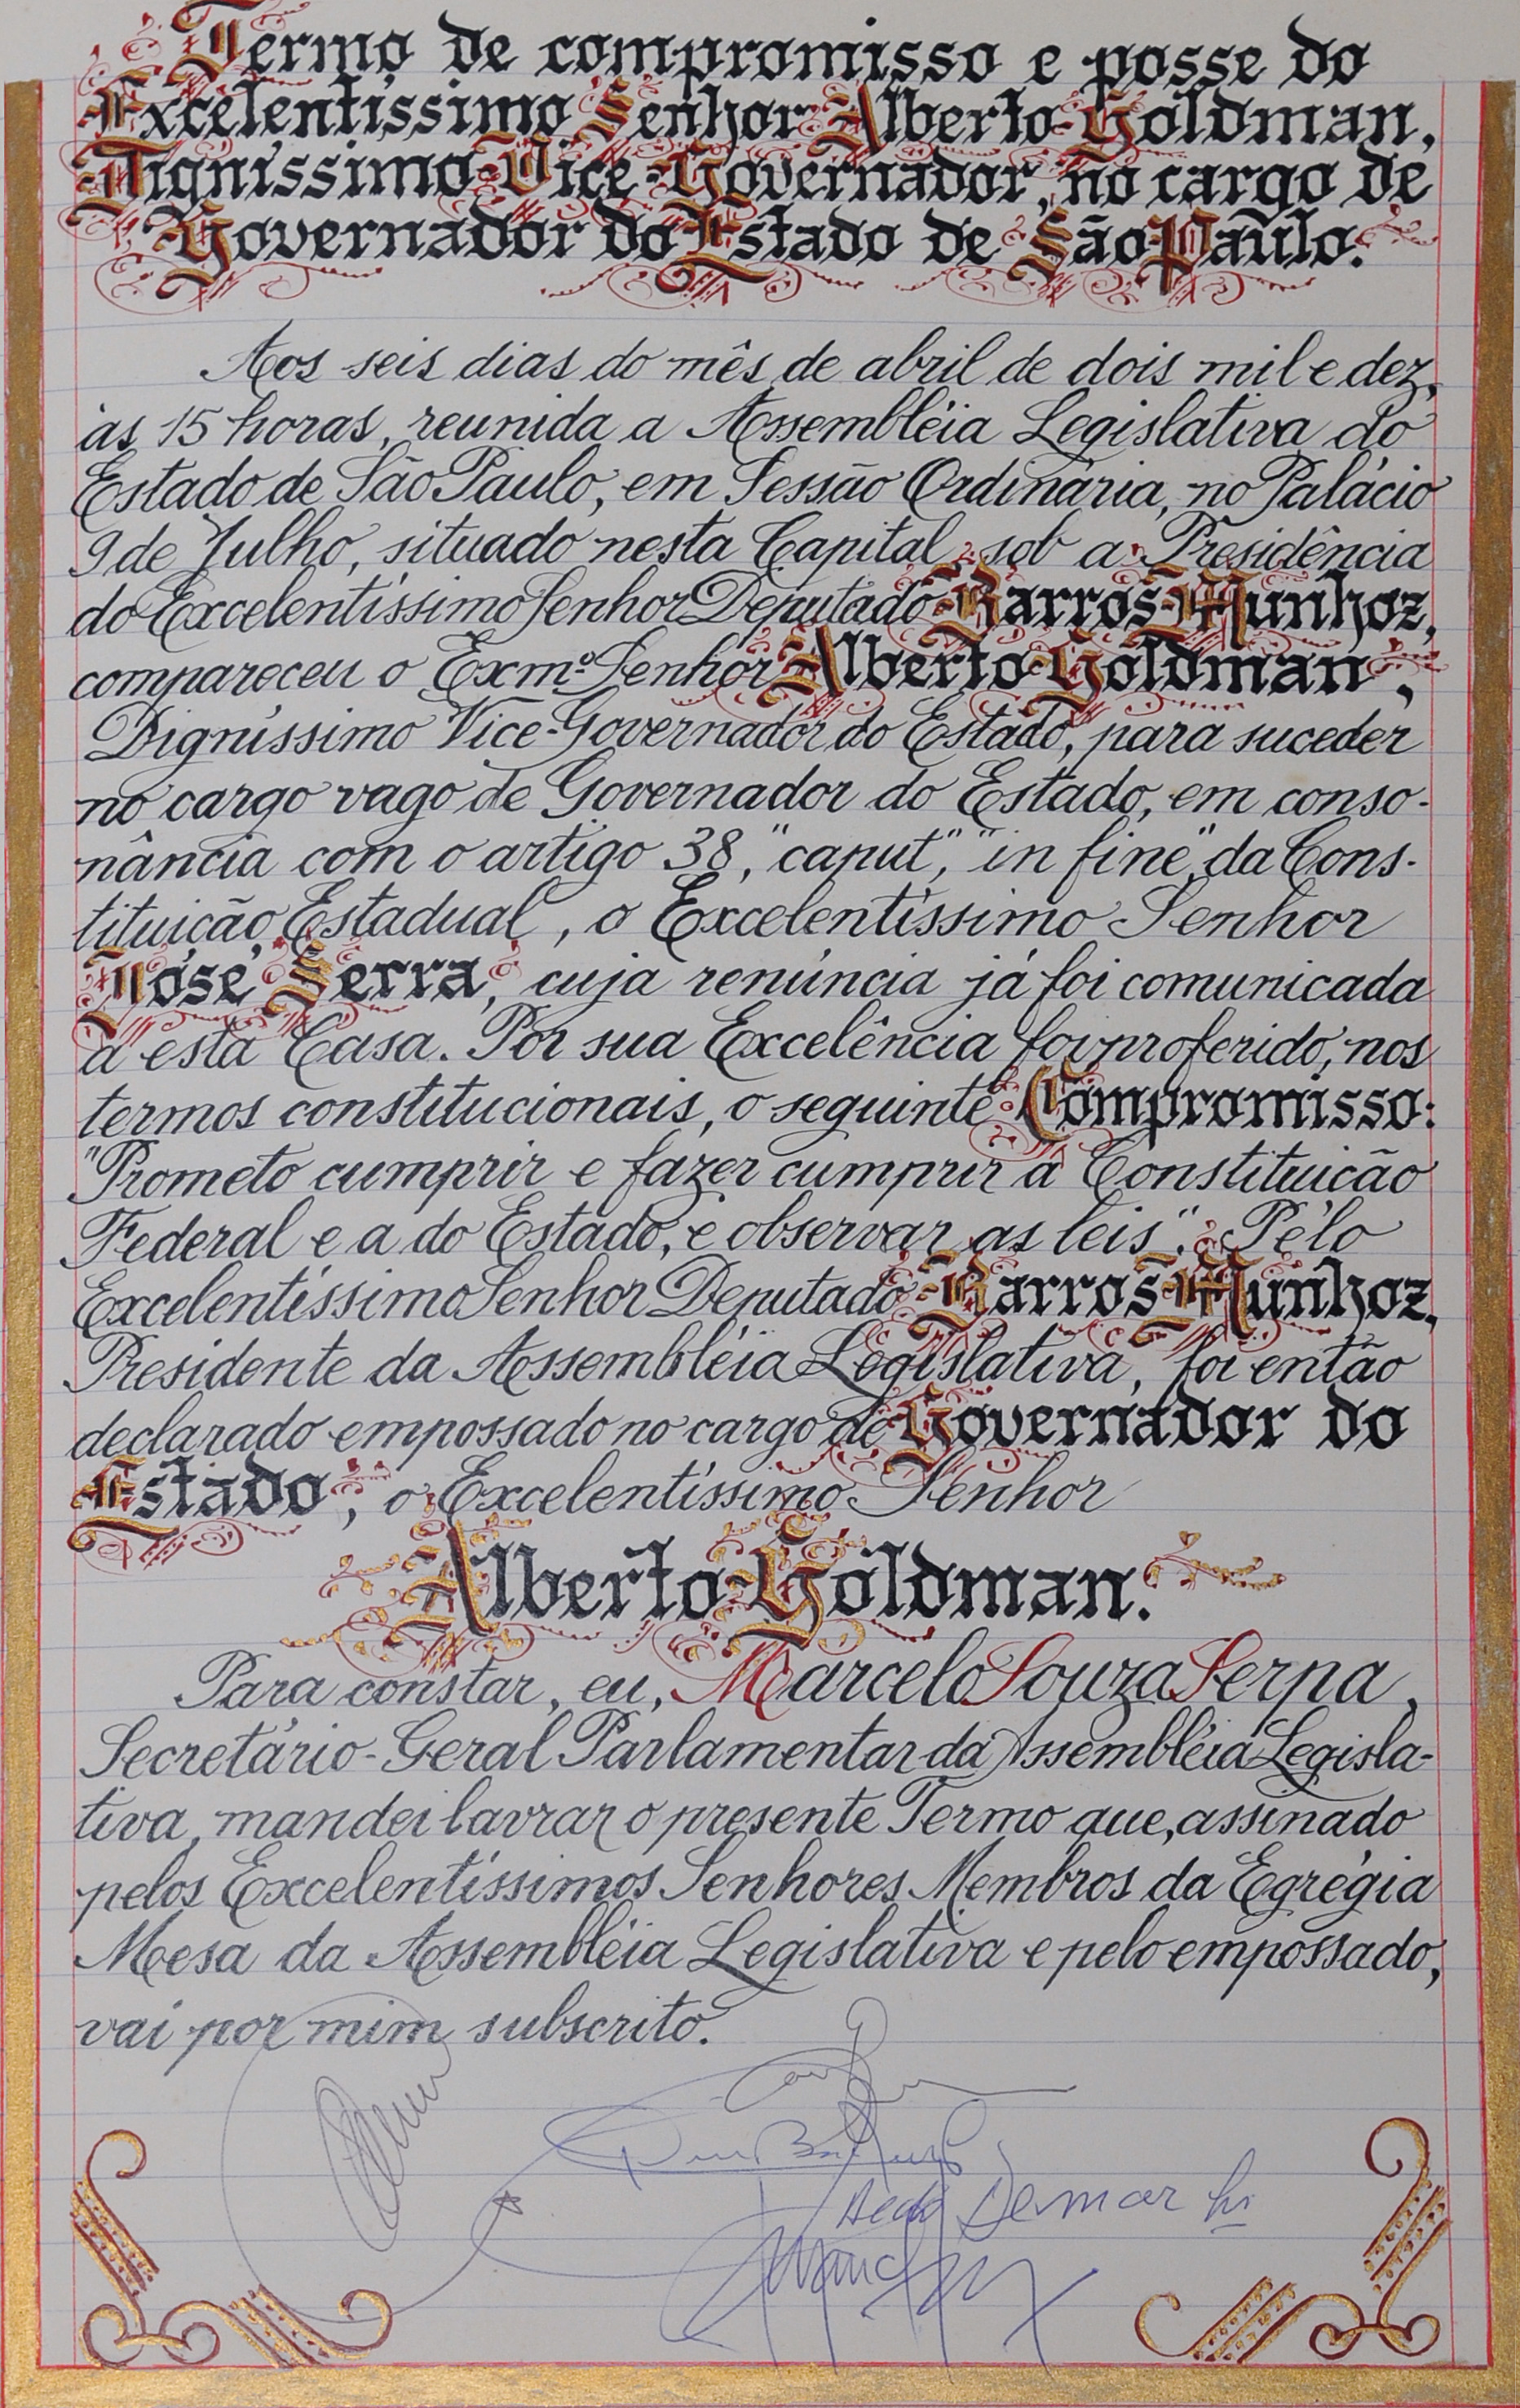 Termo de compromisso e posse do
Excelentíssimo Senhor Alberto Goldman,
Digníssimo Vice-Governador, no cargo de
Governador do Estado de São Paulo.
Aos seis dias do mês de abril de dois mil e dez,
às 15 horas, reunida a Assembléia Legislativa do
Estado de São Paulo, em Sessão Ordinária, no Palácio
9 de Julho, situado nesta Capital, sob a Presidência
do Excelentíssimo Senhor Deputado Barros Munhoz,
compareceu o Exmº Senhor Alberto Goldman,
Digníssimo Vice-Governador do Estado, para suceder
no cargo vago de Governador do Estado, em conso-
nância com o artigo 38, "caput", "in fine", da Cons-
tituição Estadual, o Excelentíssimo Senhor
José Serra, cuja renúncia já foi comunicada
a esta Casa. Por sua Excelência foi proferido, nos
termos constitucionais, o seguinte Compromisso:
"Prometo cumprir e fazer cumprir a Constituição
Federal e a do Estado, e observar as leis". Pelo
Excelentíssimo Senhor Deputado Barros Munhoz,
Presidente da Assembléia Legislativa, foi então
declarado empossado no cargo de Governador do
Estado, o Excelentíssimo Senhor
Alberto Goldman.
Para constar, eu, Marcelo Souza Serpa,
Secretário-Geral Parlamentar da Assembléia Legisla-
tiva, mandei lavrar o presente Termo que, assinado
pelos Excelentíssimos Senhores Membros da Egrégia
Mesa da Assembléia Legislativa e pelo empossado,
vai por mim subscrito.